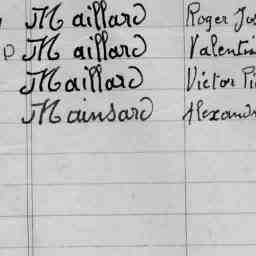 Maillard Roger Jos
D Maillard Valentin
Maillard Victor Pi
Mainsard Alexand